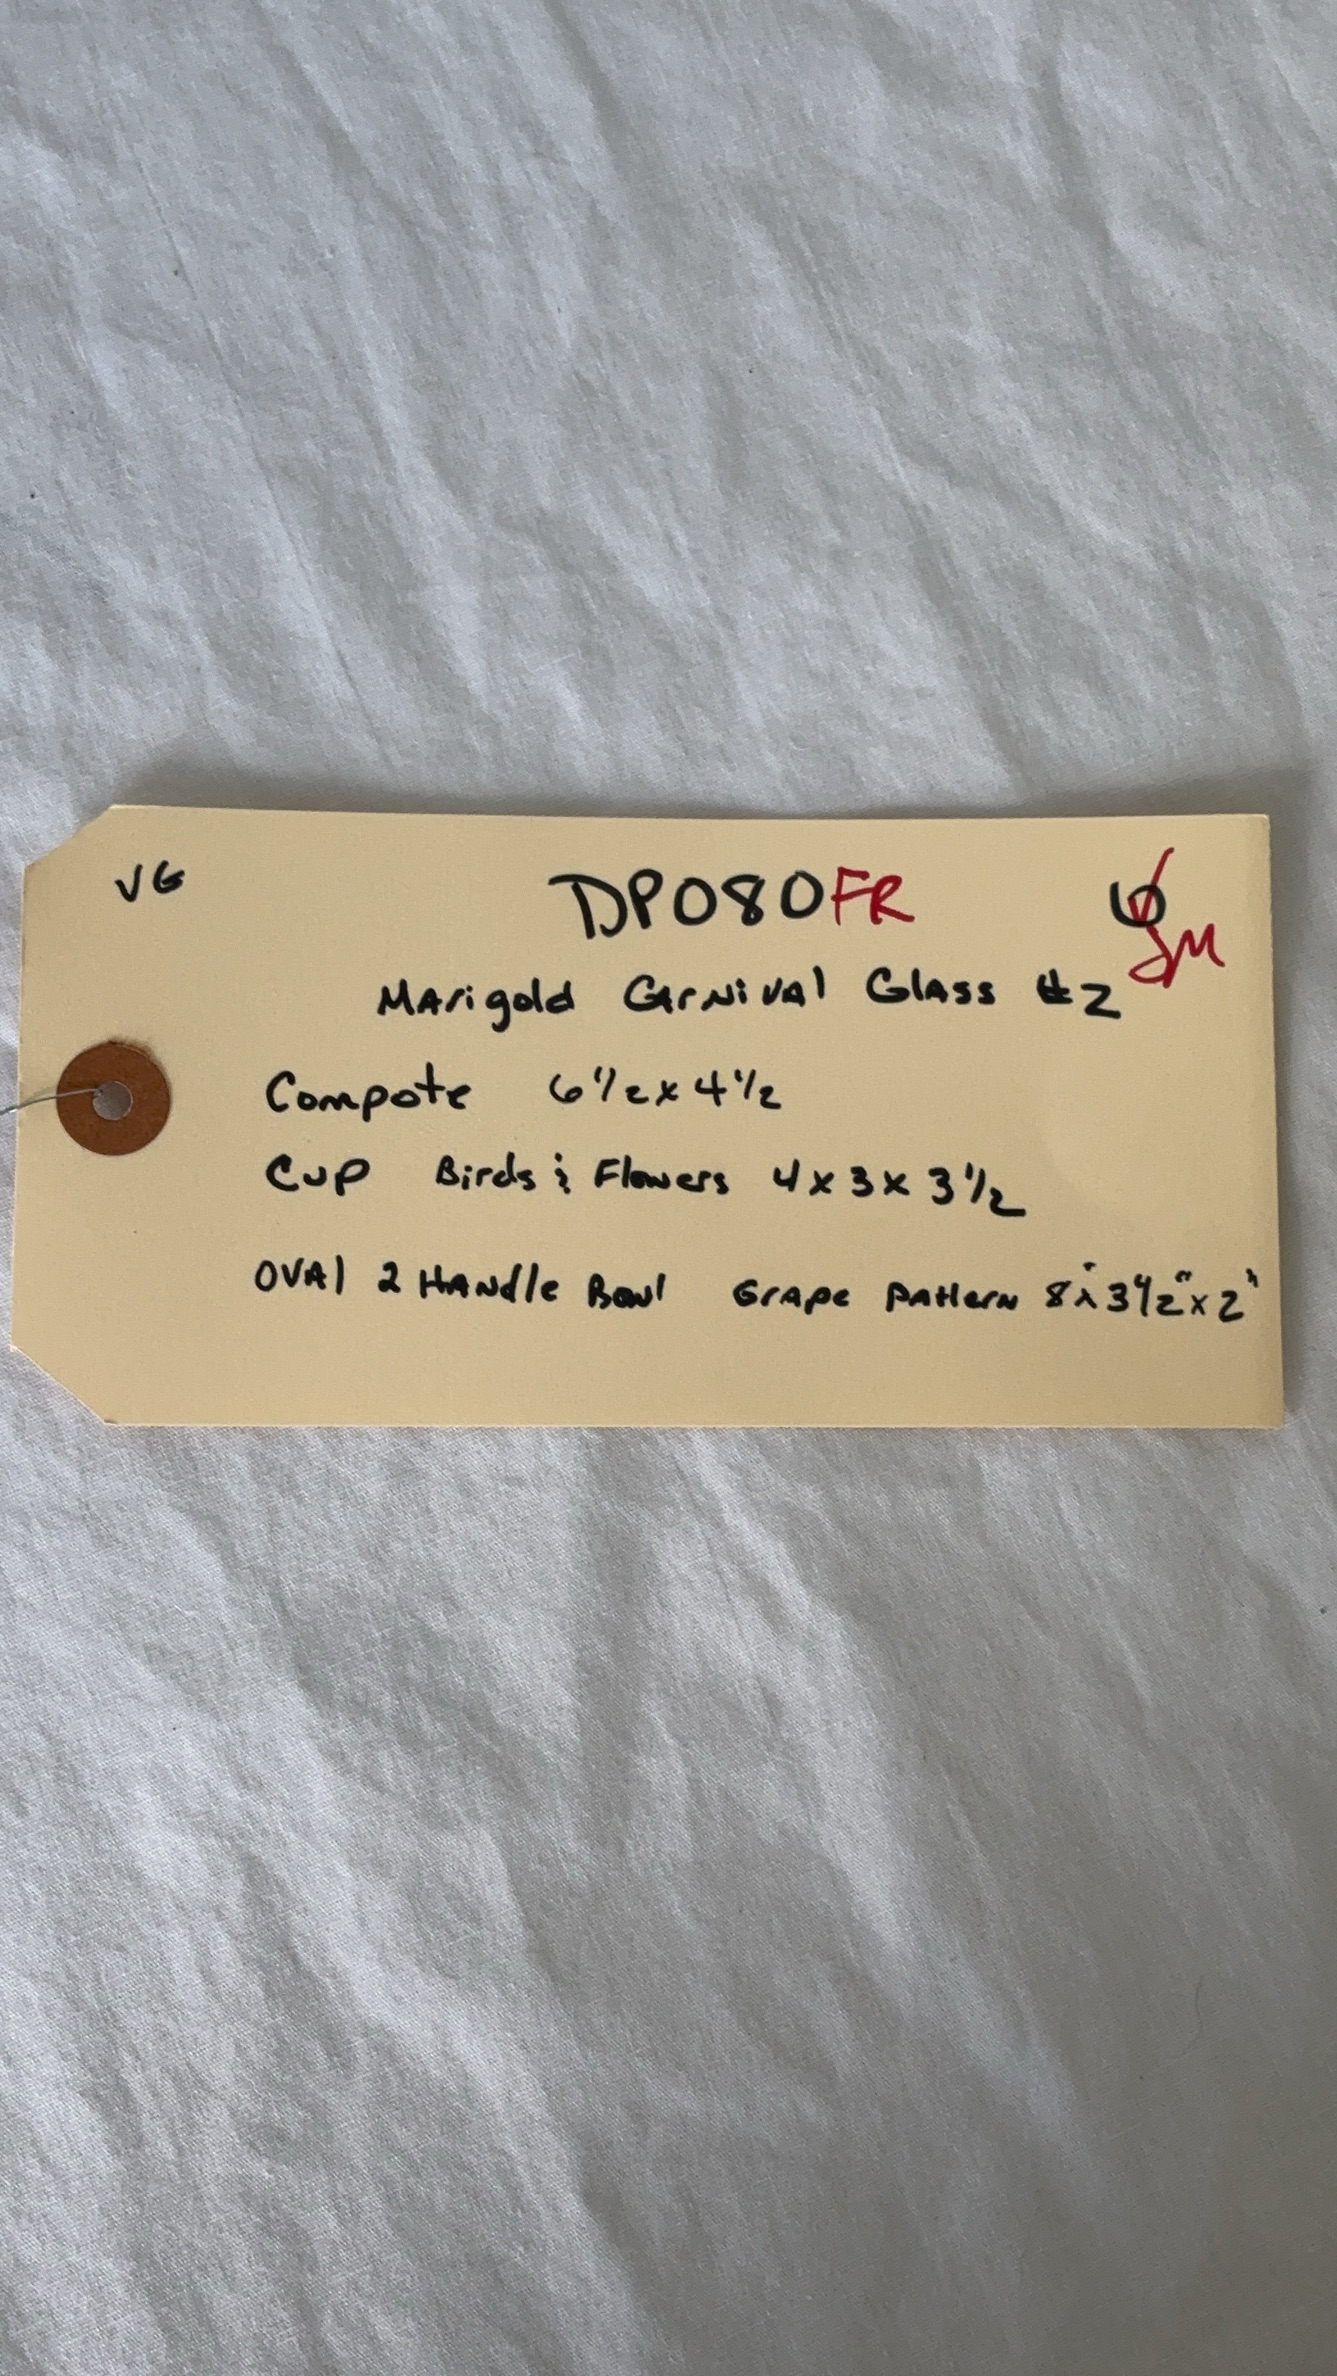 VG DP080FR 6
JM
Marigold Carnival Glass #2
Compote 6 1/2 x 4 1/2
Cup Birds & Flowers 4 x 3 x 3 1/2
Oval 2 Handle Bowl Grape Pattern 8" x 3 1/2" x 2"